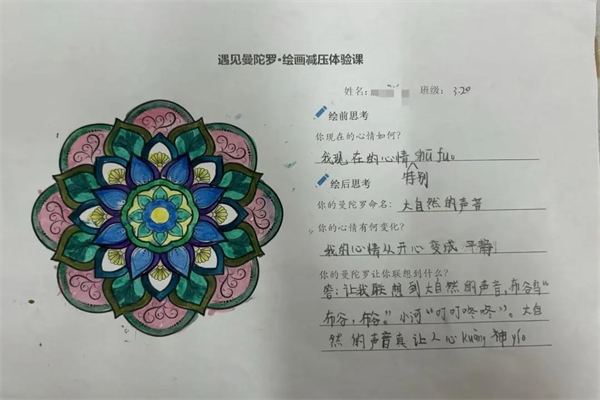 遇见曼陀罗·绘画减压体验课
姓名: 班级: 3.20
绘前思考
你现在的心情如何?
我现在的心情特别shū fu。
绘后思考
你的曼陀罗命名: 大自然的声音
你的心情有何变化?
我的心情从开心变成平静
你的曼陀罗让你联想到什么?
答:让我联想到大自然的声音,布谷鸟“
布谷,布谷。”小河“叮叮咚咚”。大自
然的声音真让人心kuàng神yí。